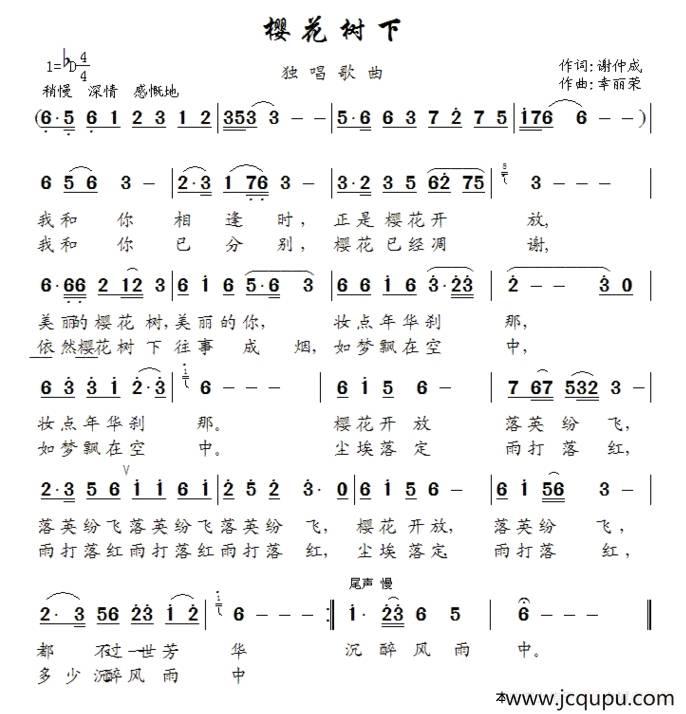 樱花树下
1=♭D 4/4
独唱歌曲
作词:谢仲成
作曲:幸丽荣
稍慢 深情 感慨地
(6·5 6 1 2 3 1 2 | 3 5 3 3 - - | 5·6 6 3 7 2 7 5 | i 7 6 6 - - ) |
6 5 6 3 - | 2·3 1 7 6 3 - | 3·2 3 5 6 2 7 5 | 3 - - - |
我和你相逢时,正是樱花开放,
我和你已分别,樱花已经凋谢,
6·6 6 2 1 2 3 | 6 i 5 6 2 | 5·6 6 i i 6 3·2 3 | 2 - - 3 0 |
美丽的樱花树,美丽的你,妆点年华刹那,
依然樱花树下往事成烟,如梦飘在空中,
6 3 3 i 2·3 | 6 - - - | 6 i 5 6 - | 7 6 7 5 3 2 3 - |
妆点年华刹那。樱花开放落英纷飞,
如梦飘在空中。尘埃落定雨打落红,
2·3 5 6 i 6 i 6 | i 2 5 2 3·0 | 6 i 5 6 6 - | 6 i 5 6 3 - |
落英纷飞落英纷飞落英纷飞,樱花开放,落英纷飞,
雨打落红雨打落红雨打落红,尘埃落定雨打落红,
尾声 慢
2·3 5 6 2 3 i 2 | 6 - - - :‖ i·2 3 6 5 | 6 - - - ‖
都不过一世芳华沉醉风雨中。
多少沉醉风雨中
本
www.jcqupu.com